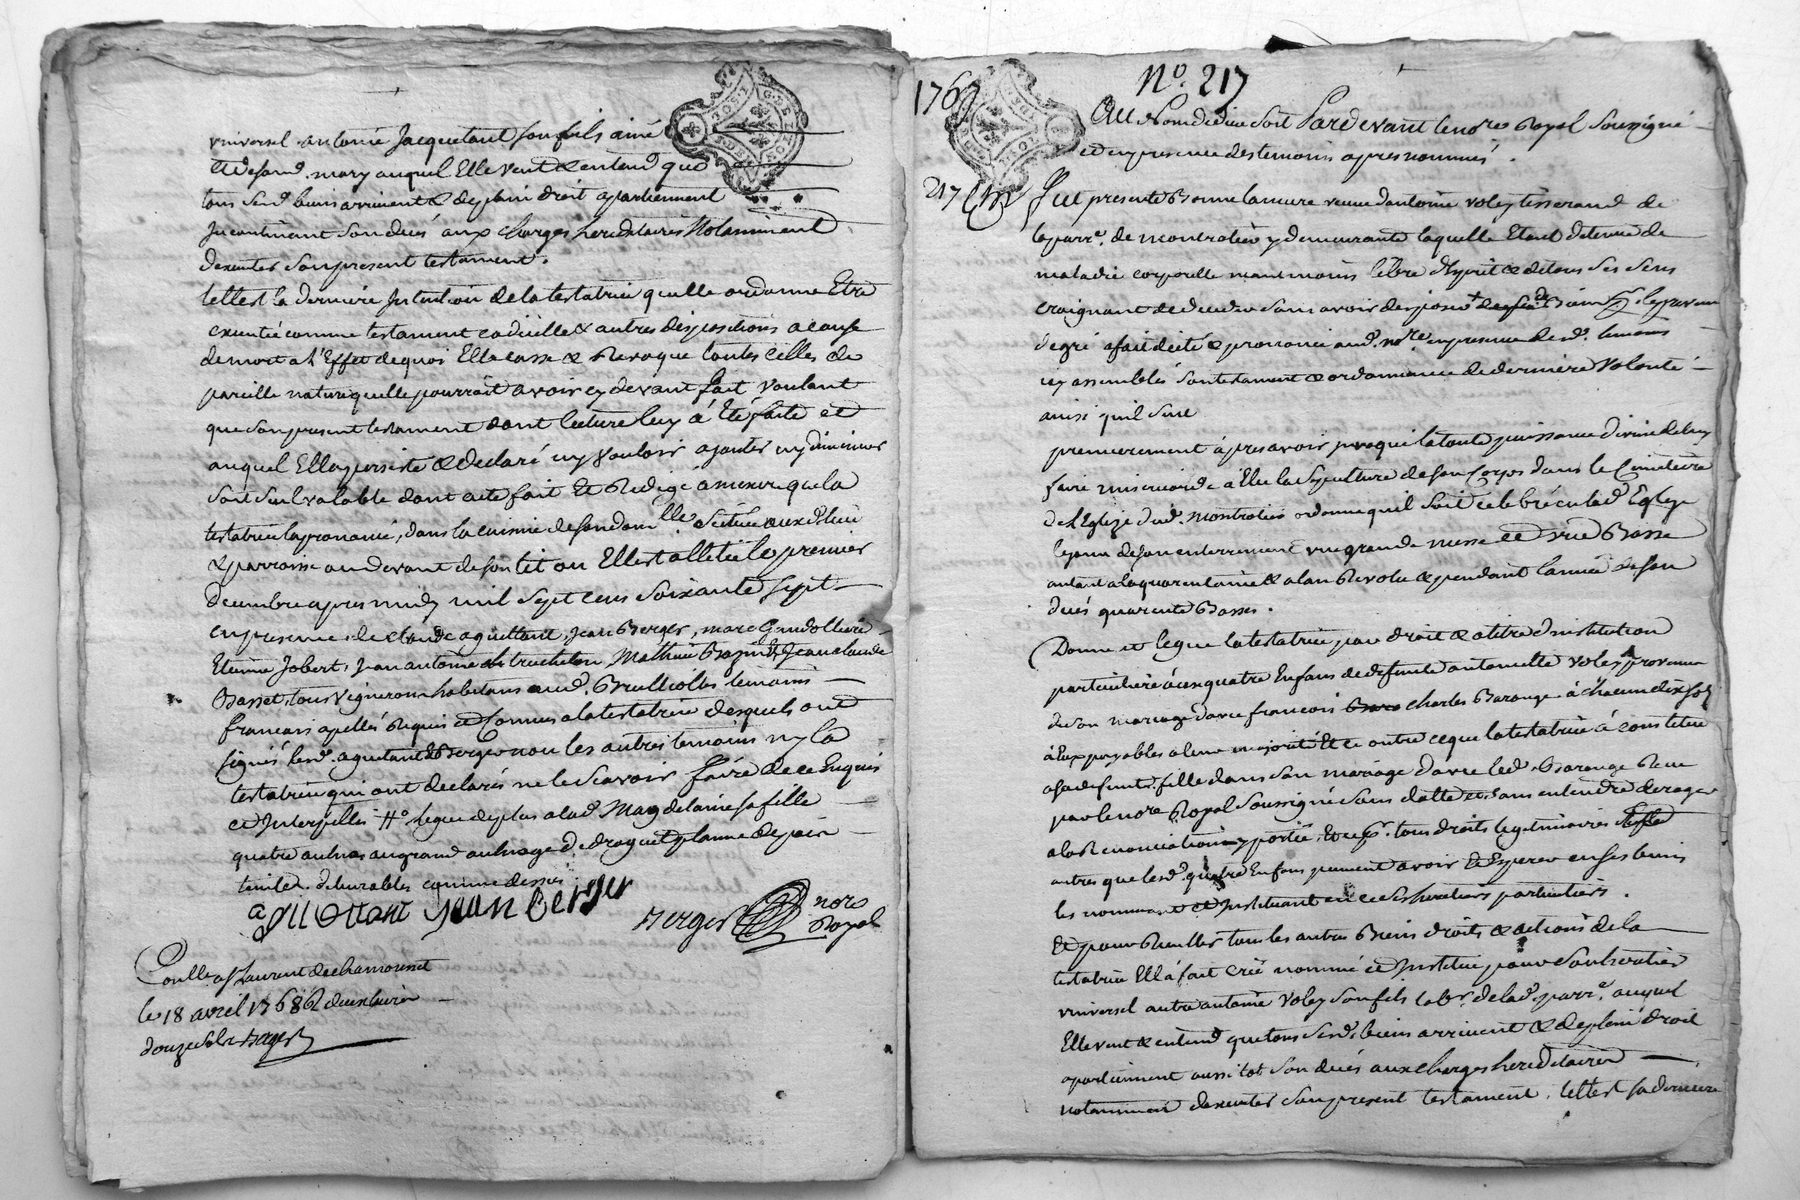 universel antoine Jacquetant son fils ainé
et de fond. mary auquel Elle veut & entend que
tous Sesd. biens arrivent & de plain droit apartiennent
Jncontinant son decès aux charges hereditaires Notamment
dexecuter son present testament.
telle est la derniere Jntention de la testatrice quelle ordonne Etre
executée comme testament codicille & autres dispositions a cause
de mort a l'Effet de quoi Elle casse & Revoque toutes celles de
pareille nature quelle pourrait avoir cy devant fait voulant
que son present testament dont lecture luy à Eté faite et
auquel Elle persiste & declaré ny vouloir ajouter ny diminuer
soit seul valable dont acte fait Et Redigé à mesure que la
testatrice la prononcé, dans la cuisine de son domlle scituée auxd. lieu
& parroisse au devant de son lit ou Elle est allitée le premier
decembre apres midy mil Sept cens Soixante sept
en presence de claude aguettant, Jean Berger, marc
Etienne Jobert, Jean antoine truchelon, Mathieu Bazin & Jean claude
Basset, tous vignerons habitans aud. Brullioles temoins
francois apellés Requis et Connus a la testatrice desquels ont
signés lesd. aguetant & Berger non les autres temoins ny la
testatrice qui ont declarés ne le Scavoir faire de ce Enquis
et Interpellés # legue de plus a lad. Magdelaine sa fille
quatre aulnes au grand aulnage de droguet
delivrables comme dessus
aguettant jean berger
Berger nore
Royal
Conllé a St Laurent de chamousset
le 18 avril 1768 R deux livres
douze sols Berger
1767
No. 217
Au Nom de dieu soit Pardevant le nore Royal soussigné
et en presence des temoins apres nommés.
217 Fut presente Bonne laneure veuve dantoine voley tisserand de
la parre. de montrotier y demeurante laquelle Etant detenue de
maladie corporelle neantmoins libre d'Esprit & de tous ses sens
craignant de deceder sans avoir disposé de ses biens
degré a fait dicté & prononcé aud. nore en presence desd. temoins
icy assemblés son testament & ordonnance de derniere volonté
ainsi quil suit
premierement à pres avoir jnvoqué la toute puissance divine de luy
faire misericorde à Elu la sepulture de son corps dans le Cimetière
de l'Eglize dud. montrotier ordonne quil soit celebré en lad. Eglize
le jour de son enterrement une grande messe et une Basse
autant a la quarantaine & a lan Revolu & pendant l'année de son
decès quarente Basses.
Donne et legue la testatrice par droit & atitre d'institution
particuliere à ses quatre Enfans de deffunte antoinette voley provenus
de son mariage davec francois charles Barange à chacun dix sols
à Eux payables a leur majorité Et ce outre ce que la testatrice à constitué
a sa deffunte fille dans son mariage davec led. Barange Recu
par le nore Royal soussigné sans datte et sans entendre deroger
a la Renonciation y portée, tous droits legitimaires
autres que lesd. quatre Enfans peuvent avoir & Esperer en ses biens
les nommant et Jnstituant en ce ses heritiers particuliers.
Et pour & en tous les autres Biens droits & actions de la
testatrice Ell'à fait crée nommé et Jnstitué pour son heritier
universel autre antoine voley son fils labr. de lad. parre. auquel
Elle veut & entend que tous sesd. biens arrivent & de plein droit
apartiennent aussitot son decès aux charges hereditaires
notamment dexecuter son present testament. telle est sa derniere